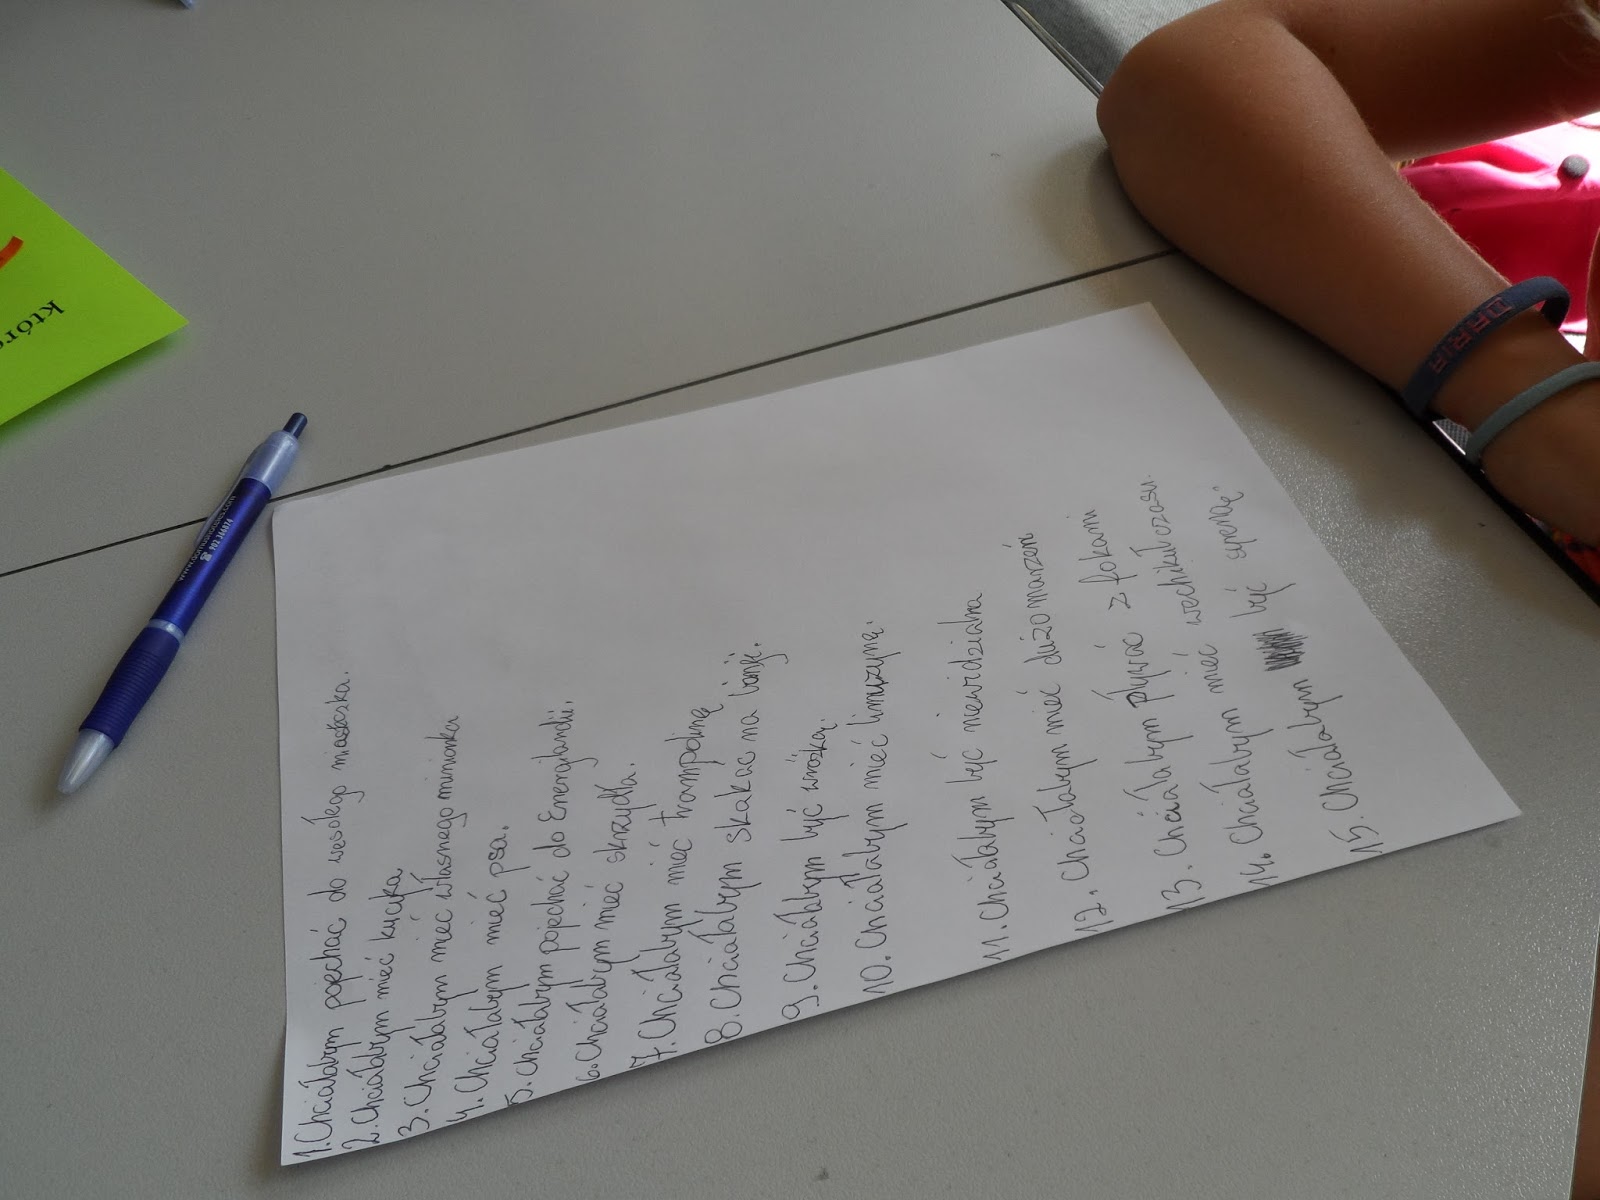 1. Chciałabym pojechać do wesołego miasteczka.
2. Chciałabym mieć kucyka
3. Chciałabym mieć własnego minionka
4. Chciałabym mieć psa.
5. Chciałabym pojechać do Energilandii.
6. Chciałabym mieć skrzydła.
7. Chciałabym mieć trampolinę
8. Chciałabym skakać na banji.
9. Chciałabym być wróżką.
10. Chciałabym mieć limuzynę.
11. Chciałabym być niewidzialna
12. Chciałabym mieć dużo marzeń
13. Chciałabym pływać z fokami
14. Chciałabym mieć wechikuł czasu.
15. Chciałabym być syreną.
DARIA
które